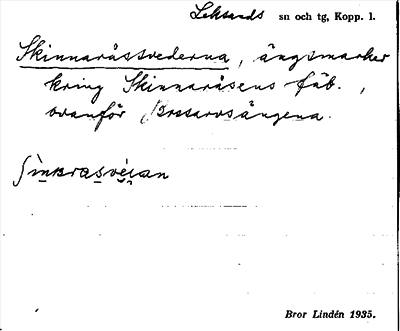 Leksands sn och tg, Kopp. l.
Skinnaråssvederna, ängsmarker
kring Skinnaråsens fäb.,
ovanför
Bror Lindén 1935.